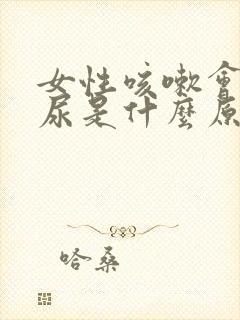 女性咳嗽會
尿是什麼原
哈桑